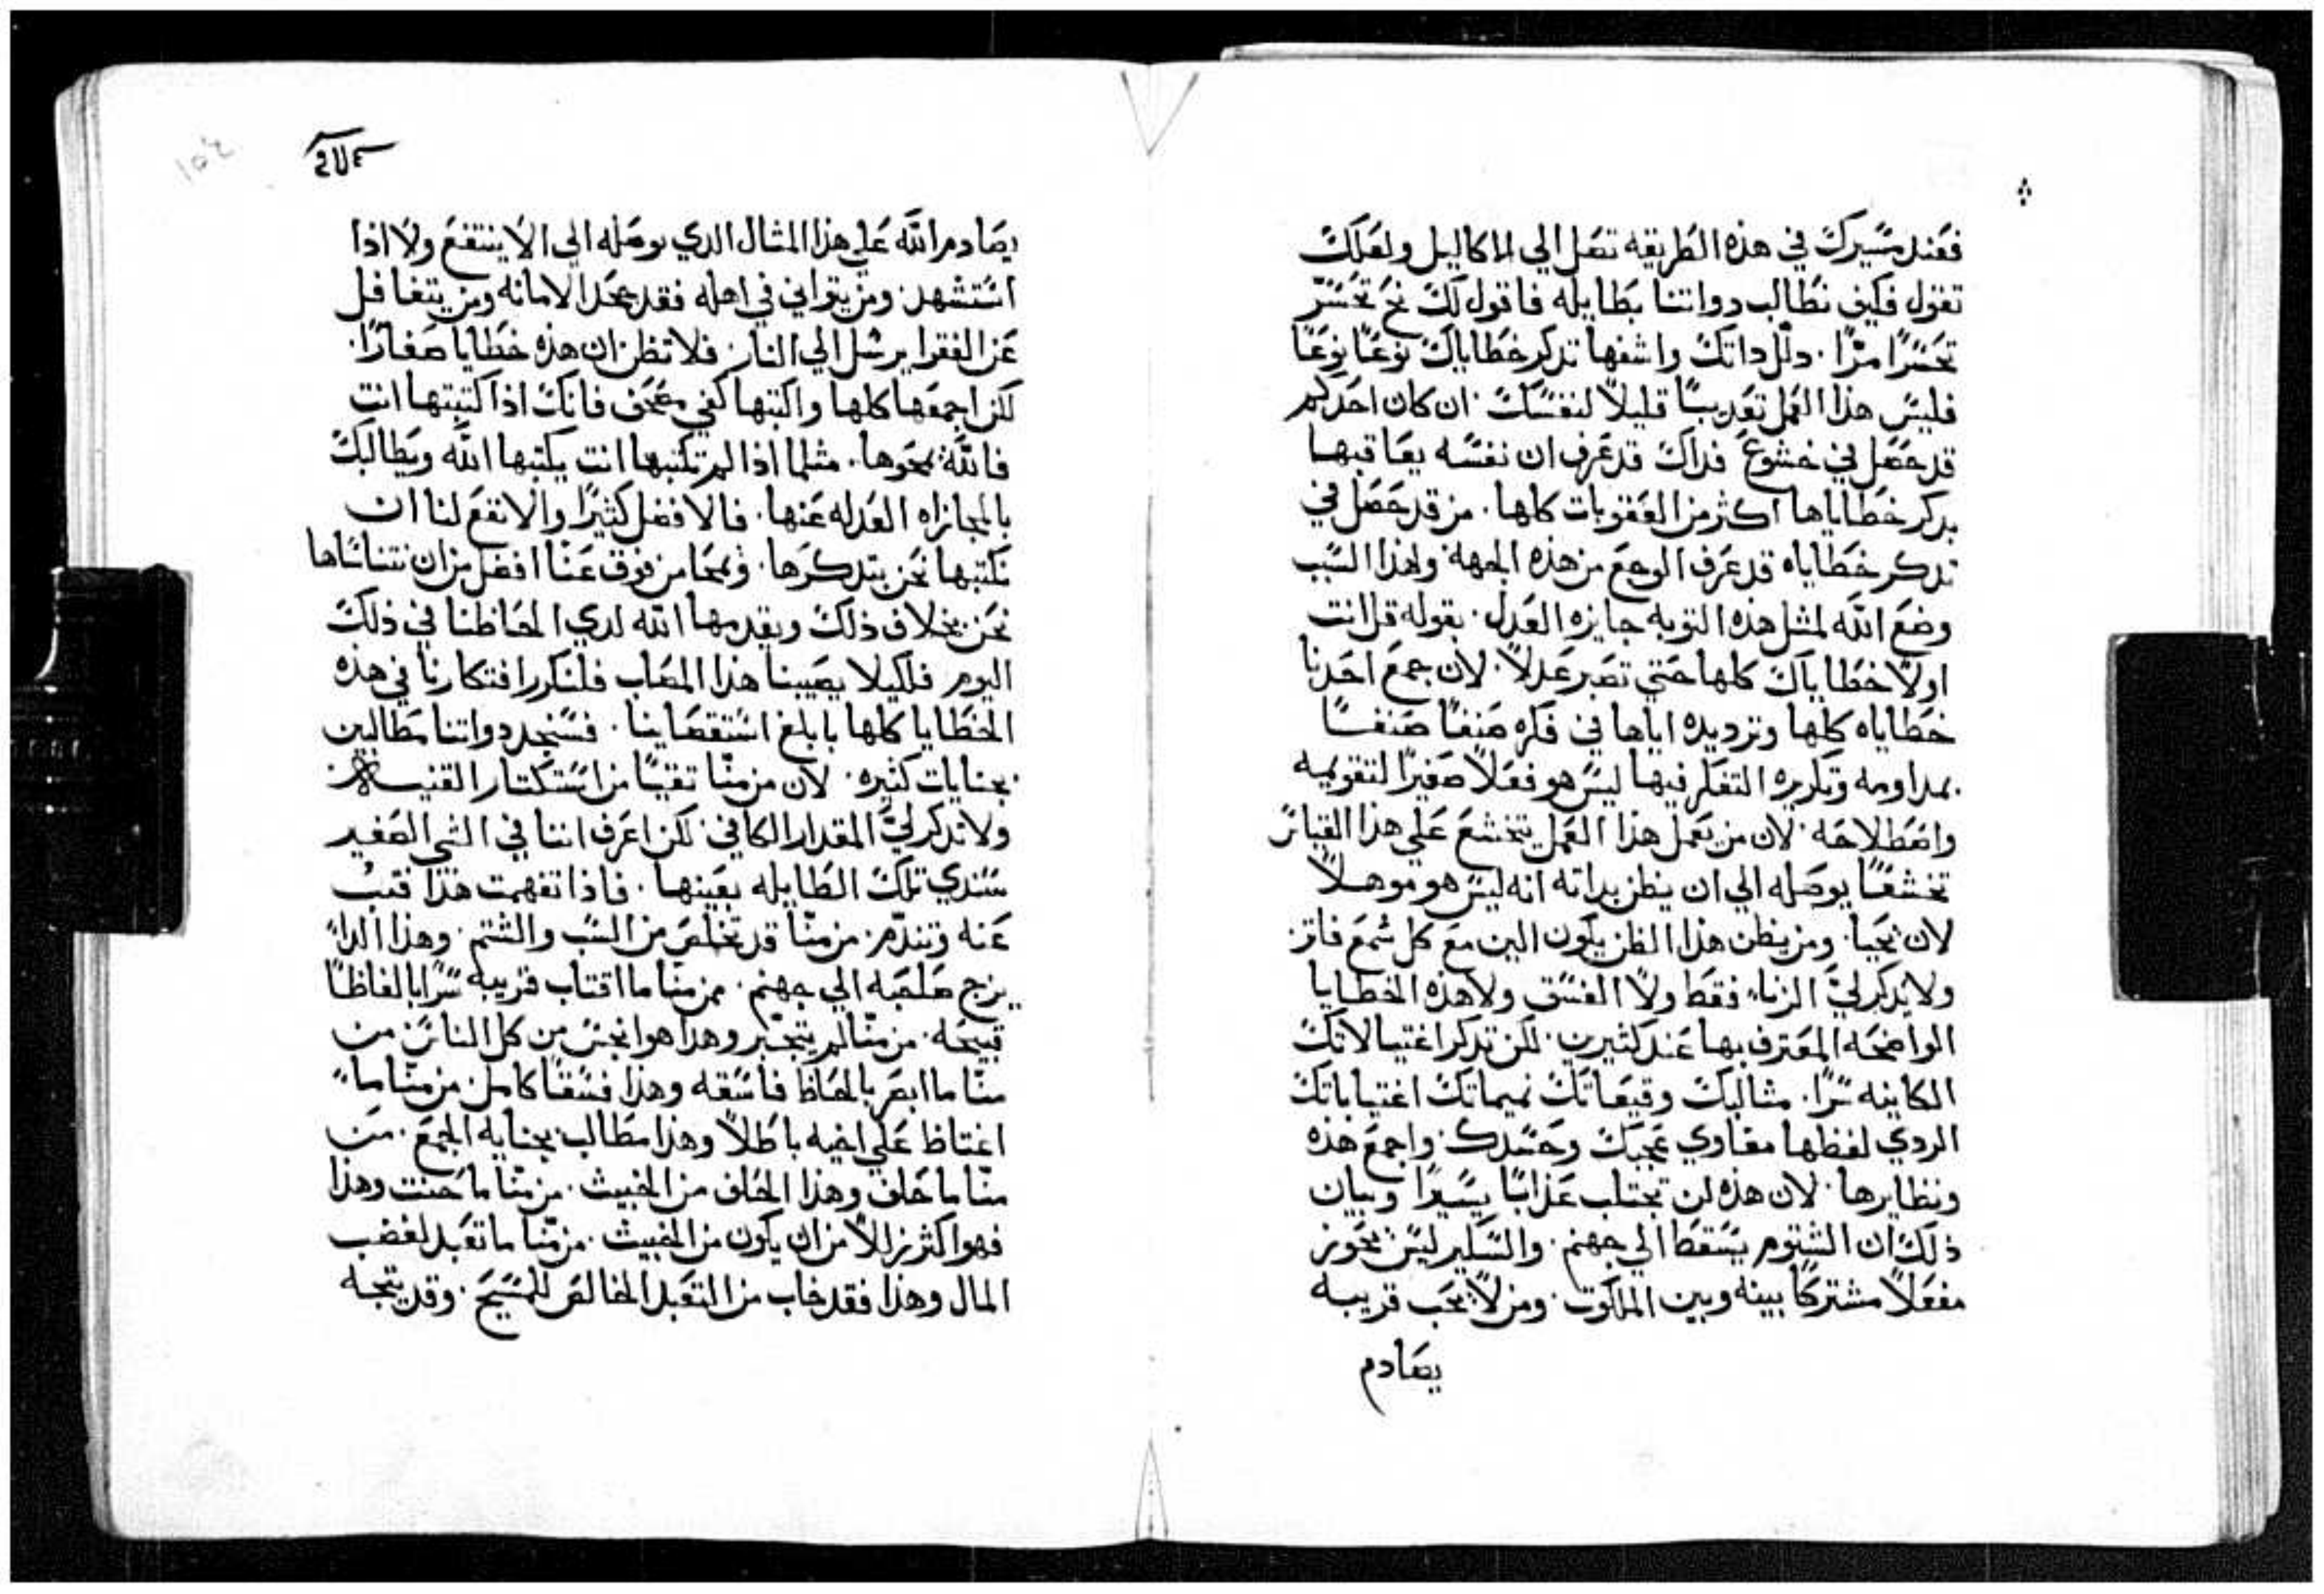 فعند مسيرك في هذه الطريقه تصل الي الاكاليل ولعلك
تقول فكيف نطالب دواتنا بطايله فاقول لك نح تحسر
تحسرًا مرًا. دلل داتك واشفها تدكر خطاياك نوعًا نوعًا
فليس هذا العمل تعديبًا قليلاً لنفسك. ان كان احدكم
قد حصل في خشوع فداك قد عرف ان نفسه يعاقبها
بدكر خطاياها اكثر من العقوبات كلها. من قد حصل في
تدكر خطاياه قد عرف الوجع من هذه الجهه ولهذا السبب
وضع الله لمثل هذه التوبه جايزه العدل. بقوله قل انت
اولاً خطاياك كلها حتي تصير عدلاً. لان جمع احدنا
خطاياه كلها وترديده اياها في فكره صنفًا صنفًا
بمداومه وتكريره التفكر فيها ليس هو فعلاً صغيرًا لتقويمه
واصطلاحه. لان من يعمل هذا العمل يتخشع علي هذا القياس
تخشعًا يوصله الي ان يظن بداته انه ليس هو موهلاً
لان يحيا. ومن يظن هذا الظن يكون الين مع كل شمع فاتر
ولا يدكر لي الزناء فقط ولا الفسق ولا هذه الخطايا
الواضحه المعترف بها عند كثيرين. لكن تدكر اغتيالاتك
الكاينه سرًا. مثالبك وقيعاتك نميماتك اغتياباتك
الردي لفظها مقاوي عجبك وحسدك. واجمع هذه
ونظايرها. لان هذه لن تجتلب عذابًا يسيرًا وبيان
ذلك ان الشتوم يسقط الي جهنم. والسكير ليس يحوز
مفعلاً مشتركًا بينه وبين الملكوت. ومن لا يحب قريبه
يصادم
يصادم الله علي هذا المثال الدي يوصله الي الا ينتفع ولا اذا
استشهد. ومن يتواني في اهله فقد جحد الامانه ومن يتغافل
عن الفقرا يرسل الي النار. فلا تظن ان هذه خطايا صغارًا.
لكن اجمعها كلها واكتبها كفي مصحف فانك اذا كتبتها انت
فالله يمحوها. مثلما اذا لم تكتبها انت يكتبها الله ويطالبك
بالمجازاه العدله عنها. فالافضل كثيرًا والانفع لنا ان
نكتبها نحن بتدكرها. وتمحا من فوق عنا افضل من ان نتناساها
نحن بخلاف ذلك ويقدمها الله لدي الحاظنا في ذلك
اليوم فلكيلا يصيبنا هذا المصاب فلنكرر افتكارنا في هذه
الخطايا كلها بابلغ استقصاينا. فسنجد دواتنا مطالبين
بجنايات كثيره. لان من منّا تقيًا من استكتار القنيه
ولا تدكر لي المقدار الكافي. لكن اعرف اننا في الشي الصغير
سندي تلك الطايله بعينها. فاذا تفهمت هذا فتب
عنه وتندّم. من منّا قد تخلص من السب والشتم. وهذا الداء
يزج صاحبه الي جهنم. من منا ما اقتاب قريبه سرًا بالفاظًا
قبيحه. من منّا لم يتجبر وهذا هو انجس من كل الناس من
منّا ما ابصر بالحاظ فاسقه وهذا فسقًا كامل. من منّا ما
اغتاظ علي اخيه باطلاً وهذا مطالب بجنايه الجمع. من
منّا ما حلف وهذا الحلف من الخبيث. من منّا ما حنث وهذا
فهو اكثر زللاً من ان يكون من الخبيث. من منّا ما تعبد لغضب
المال وهذا فقد خاب من التعبد الخالص للمسيح. وقد يتجه